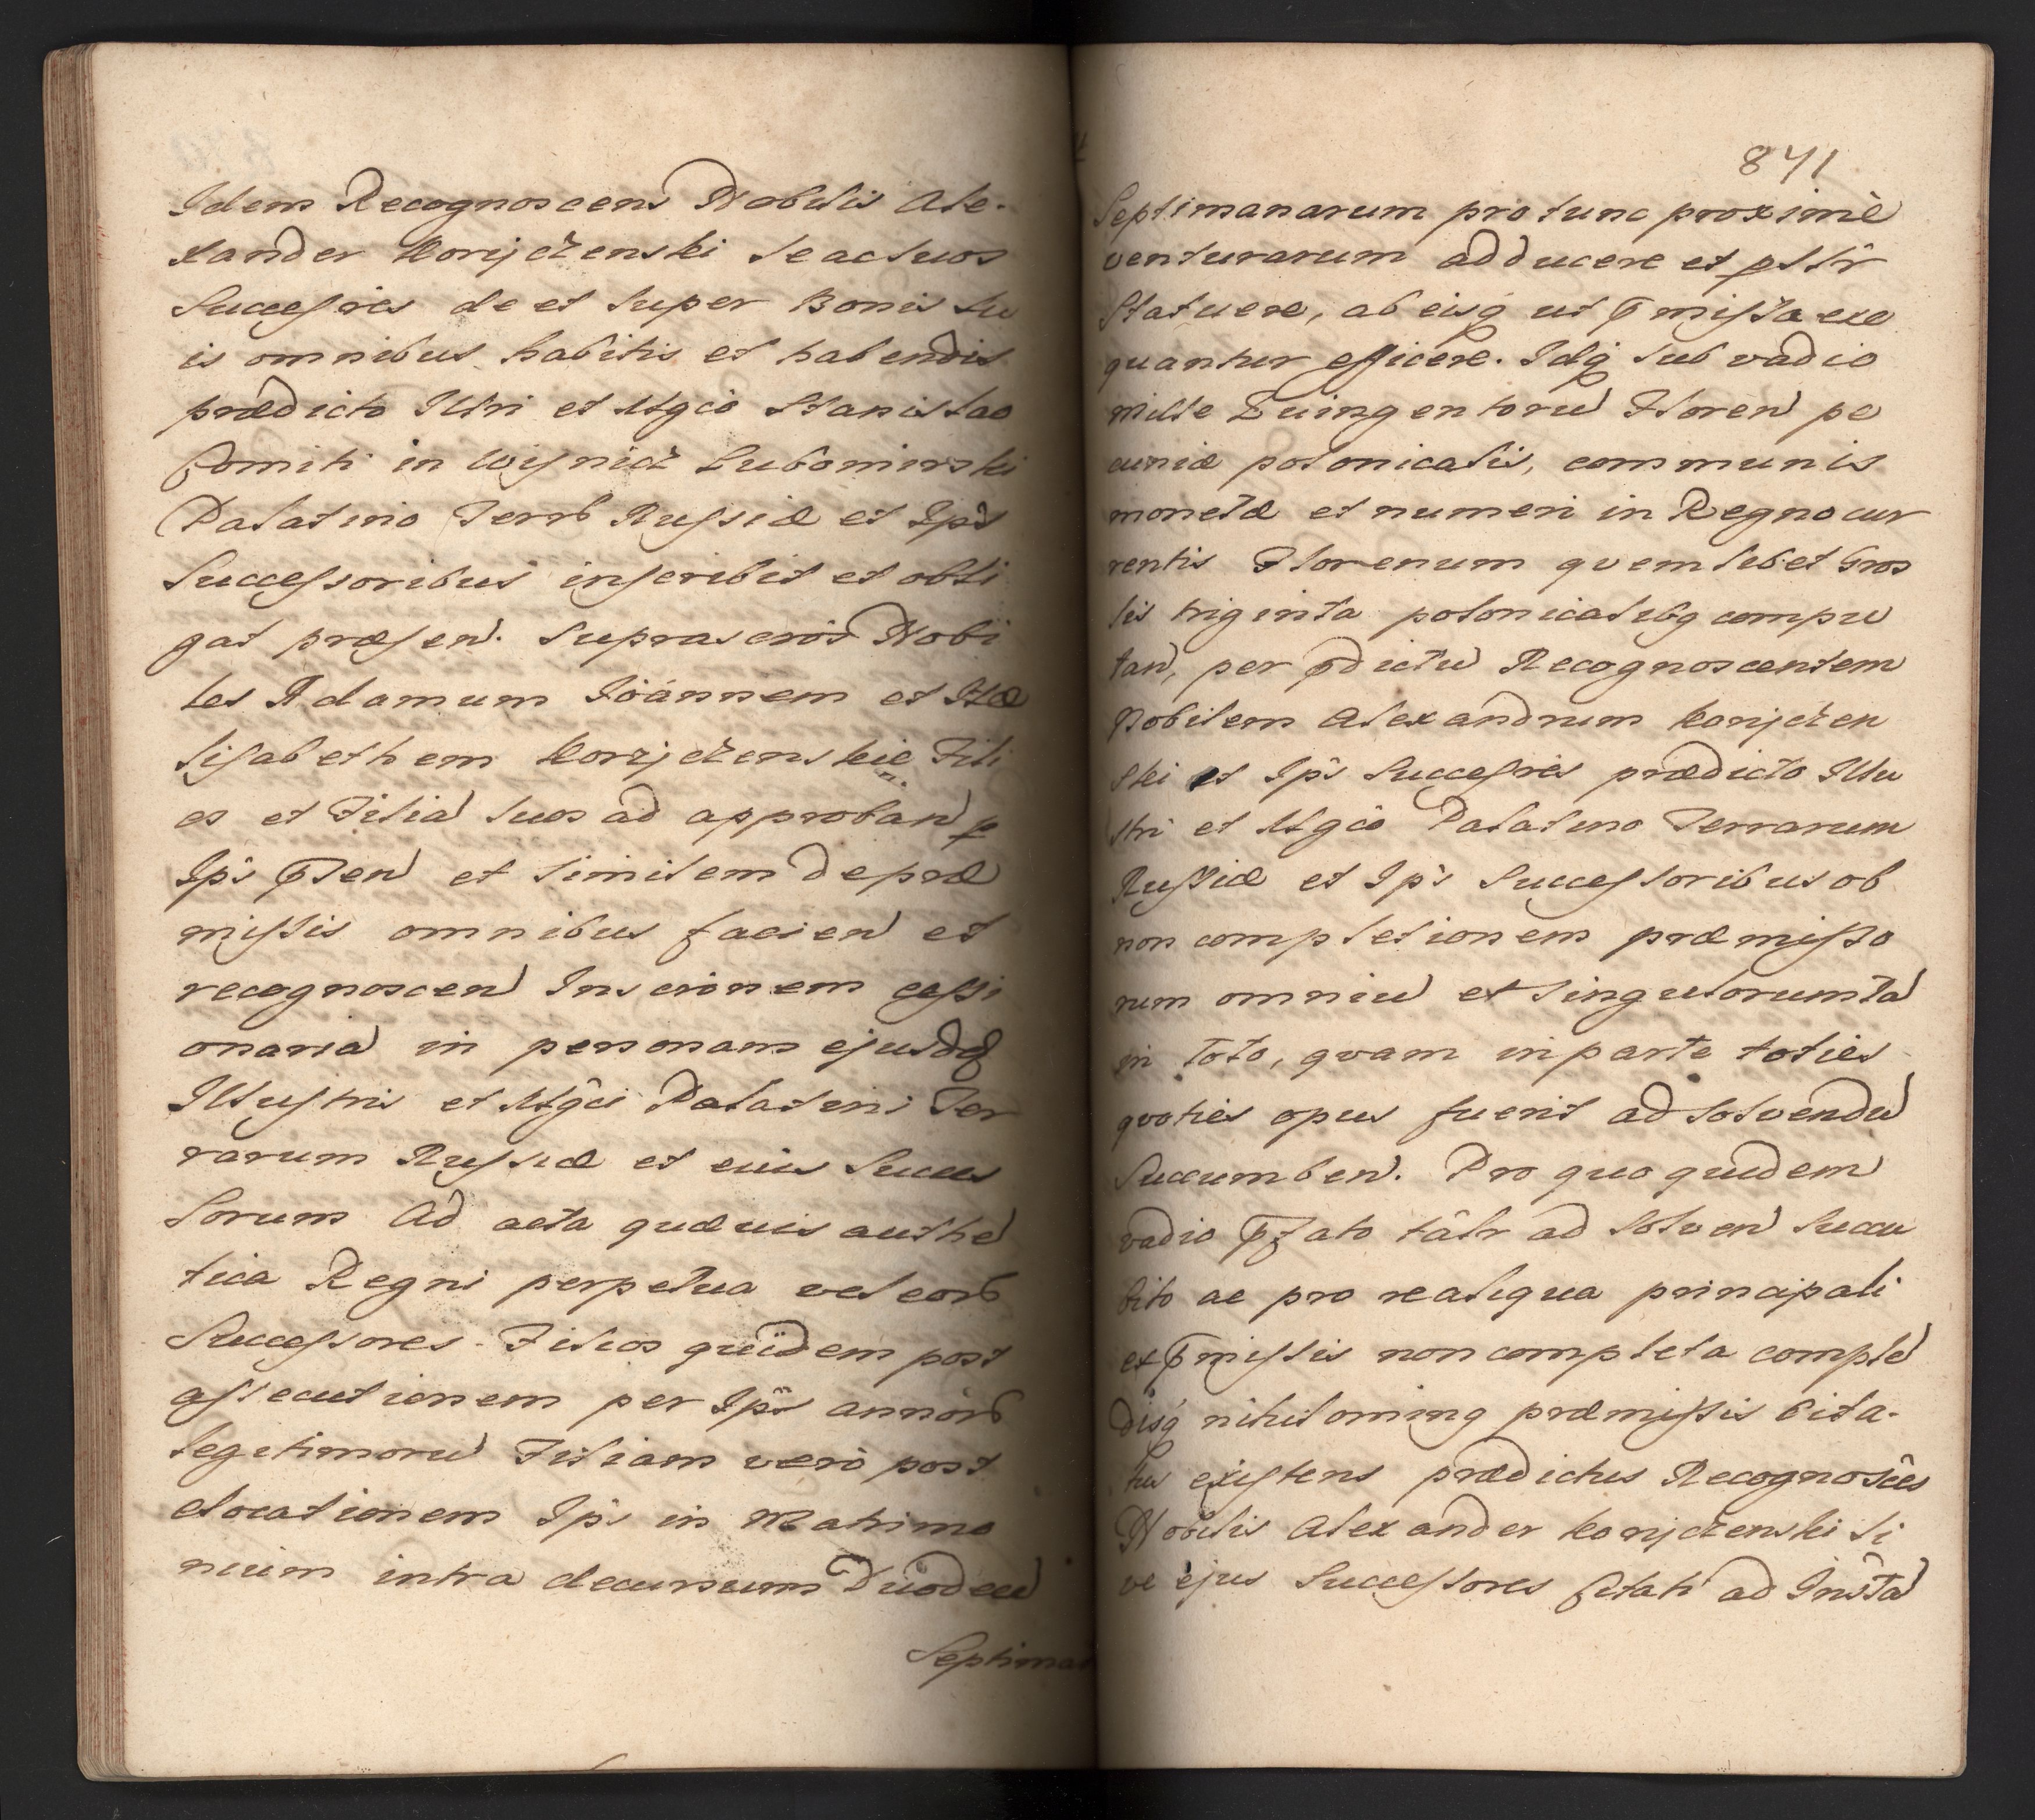 Idem Recognoscens Nobilis Ale-
xander Korijczenski se ac suos
Succeſsres de et super Bonis su
is omnibus habitis et habendis
prædicto Illri et Mgco Stanislao
Comiti in Wiſnicz Lubomirski
Palatino Terrb Ruſsiæ et Ips
Succeſsoribus inſcribit et obli
gat præſen. Suprascros Nobi
les Adamum Joannem et Hæ
liſabethem Korzjczenskie Fili
os et Filia suos ad approban p
Ips pnten et similem de præ
miſsis omnibus facien et
recognoscen Inscronem ceſsi
onaria in personam ejusdq
Illuſtris et Mgci Palatini Ter
rarum Ruſsiæ et eius Succes
sorum Ad acta quævis authe
tica Regni perpetua vel eorb
Succeſsores. Filios quidem post
aſsecutionem per Ips annorb
legitimoru Filiam vero post
elocationem Ips in Matrimo
nium intra decursum Duodeci
Septimana
871
Septimanarum pro tunc proxime
venturarum adducere et psltr
Statuere, ab eisq ut pmiſsa exe
quantur efficere. Idq sub vadio
Mille Quingentoru Floren pe
cuniæ polonicalis, communis
monetæ et numeri in Regno cur
rentis Florenum quemlibet Gros
sis triginta polonicalibq compu
tan, per pdictu Recognoscentem
Nobilem Alexandrum Korijczen
ski et Ips Succeſsres prædicto Illu
stri et Mgco Palatino Terrarum
Ruſsiæ et Ips Succeſsoribus ob
non completionem præmiſso
rum omniu et singulorum ta
in toto, quam in parte toties
quoties opus fuerit ad solvendu
Succumben. Pro quo quidem
vadio pfato talr ad solven Succu
bito ac pro re aliqua principali
ex pmiſsis non completa comple
disq nihilominq præmiſsis Cita-
tus exiſtens prædictus Recognosces
Nobilis Alexander Korijczenski si
ve ejus Succeſsores citati ad Insta